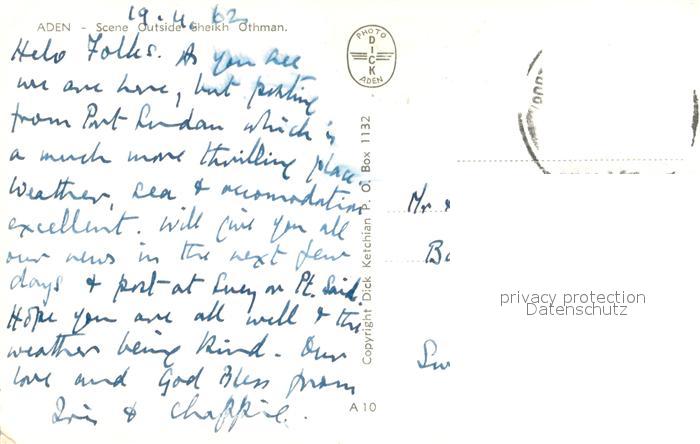 19.4.62
ADEN - Scene Outside Sheikh Othman.
Helo Folks. As you see
we are here, but posting
from Port Sudan which is
a much more thrilling place.
Weather, sea & accomodation
excellent. Will give you all
our news in the next few
days & post at Suez or Pt. Said.
Hope you are all well & the
weather being kind. Our
love and God Bless from
Iris & Chappie.
PHOTO
DICK
ADEN
Copyright Dick Ketchian P. O. Box 1132
A 10
Mr
privacy protection
Datenschutz